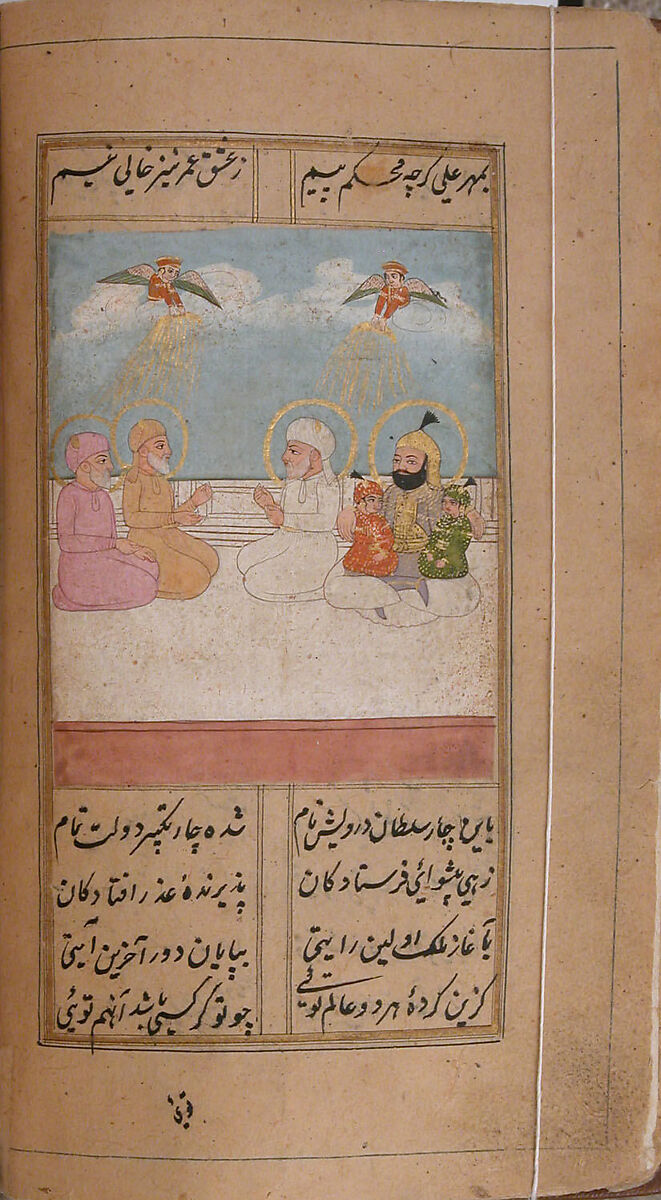 بمهر علی گرچه محکم پییم ز عشق عمر نیز خالی نییم
باین چار سلطان درویش نام شده چار تکبیر دولت تمام
زهی پیشوائی فرستادکان پذیرندهٔ عذر افتادکان
بآغاز ملک اولین رایتی بپایان دور آخرین آیتی
کزین کردهٔ هر دو عالم توئی چو تو کر کسی باشد آنهم توئی